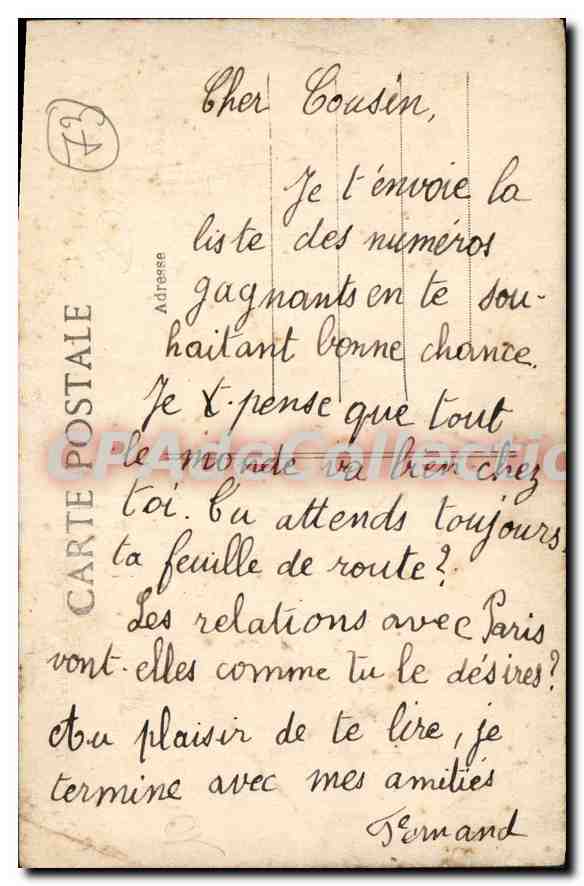 73
Cher Cousin,
Je t'envoie la
liste des numéros
gagnants en te sou-
haitant bonne chance.
Je t. pense que tout
le monde va bien chez
toi. Tu attends toujours
ta feuille de route?
Les relations avec Paris
vont-elles comme tu le désires?
Au plaisir de te lire, je
termine avec mes amitiés
Fernand
CARTE POSTALE
Adresse
CPAdeCollection